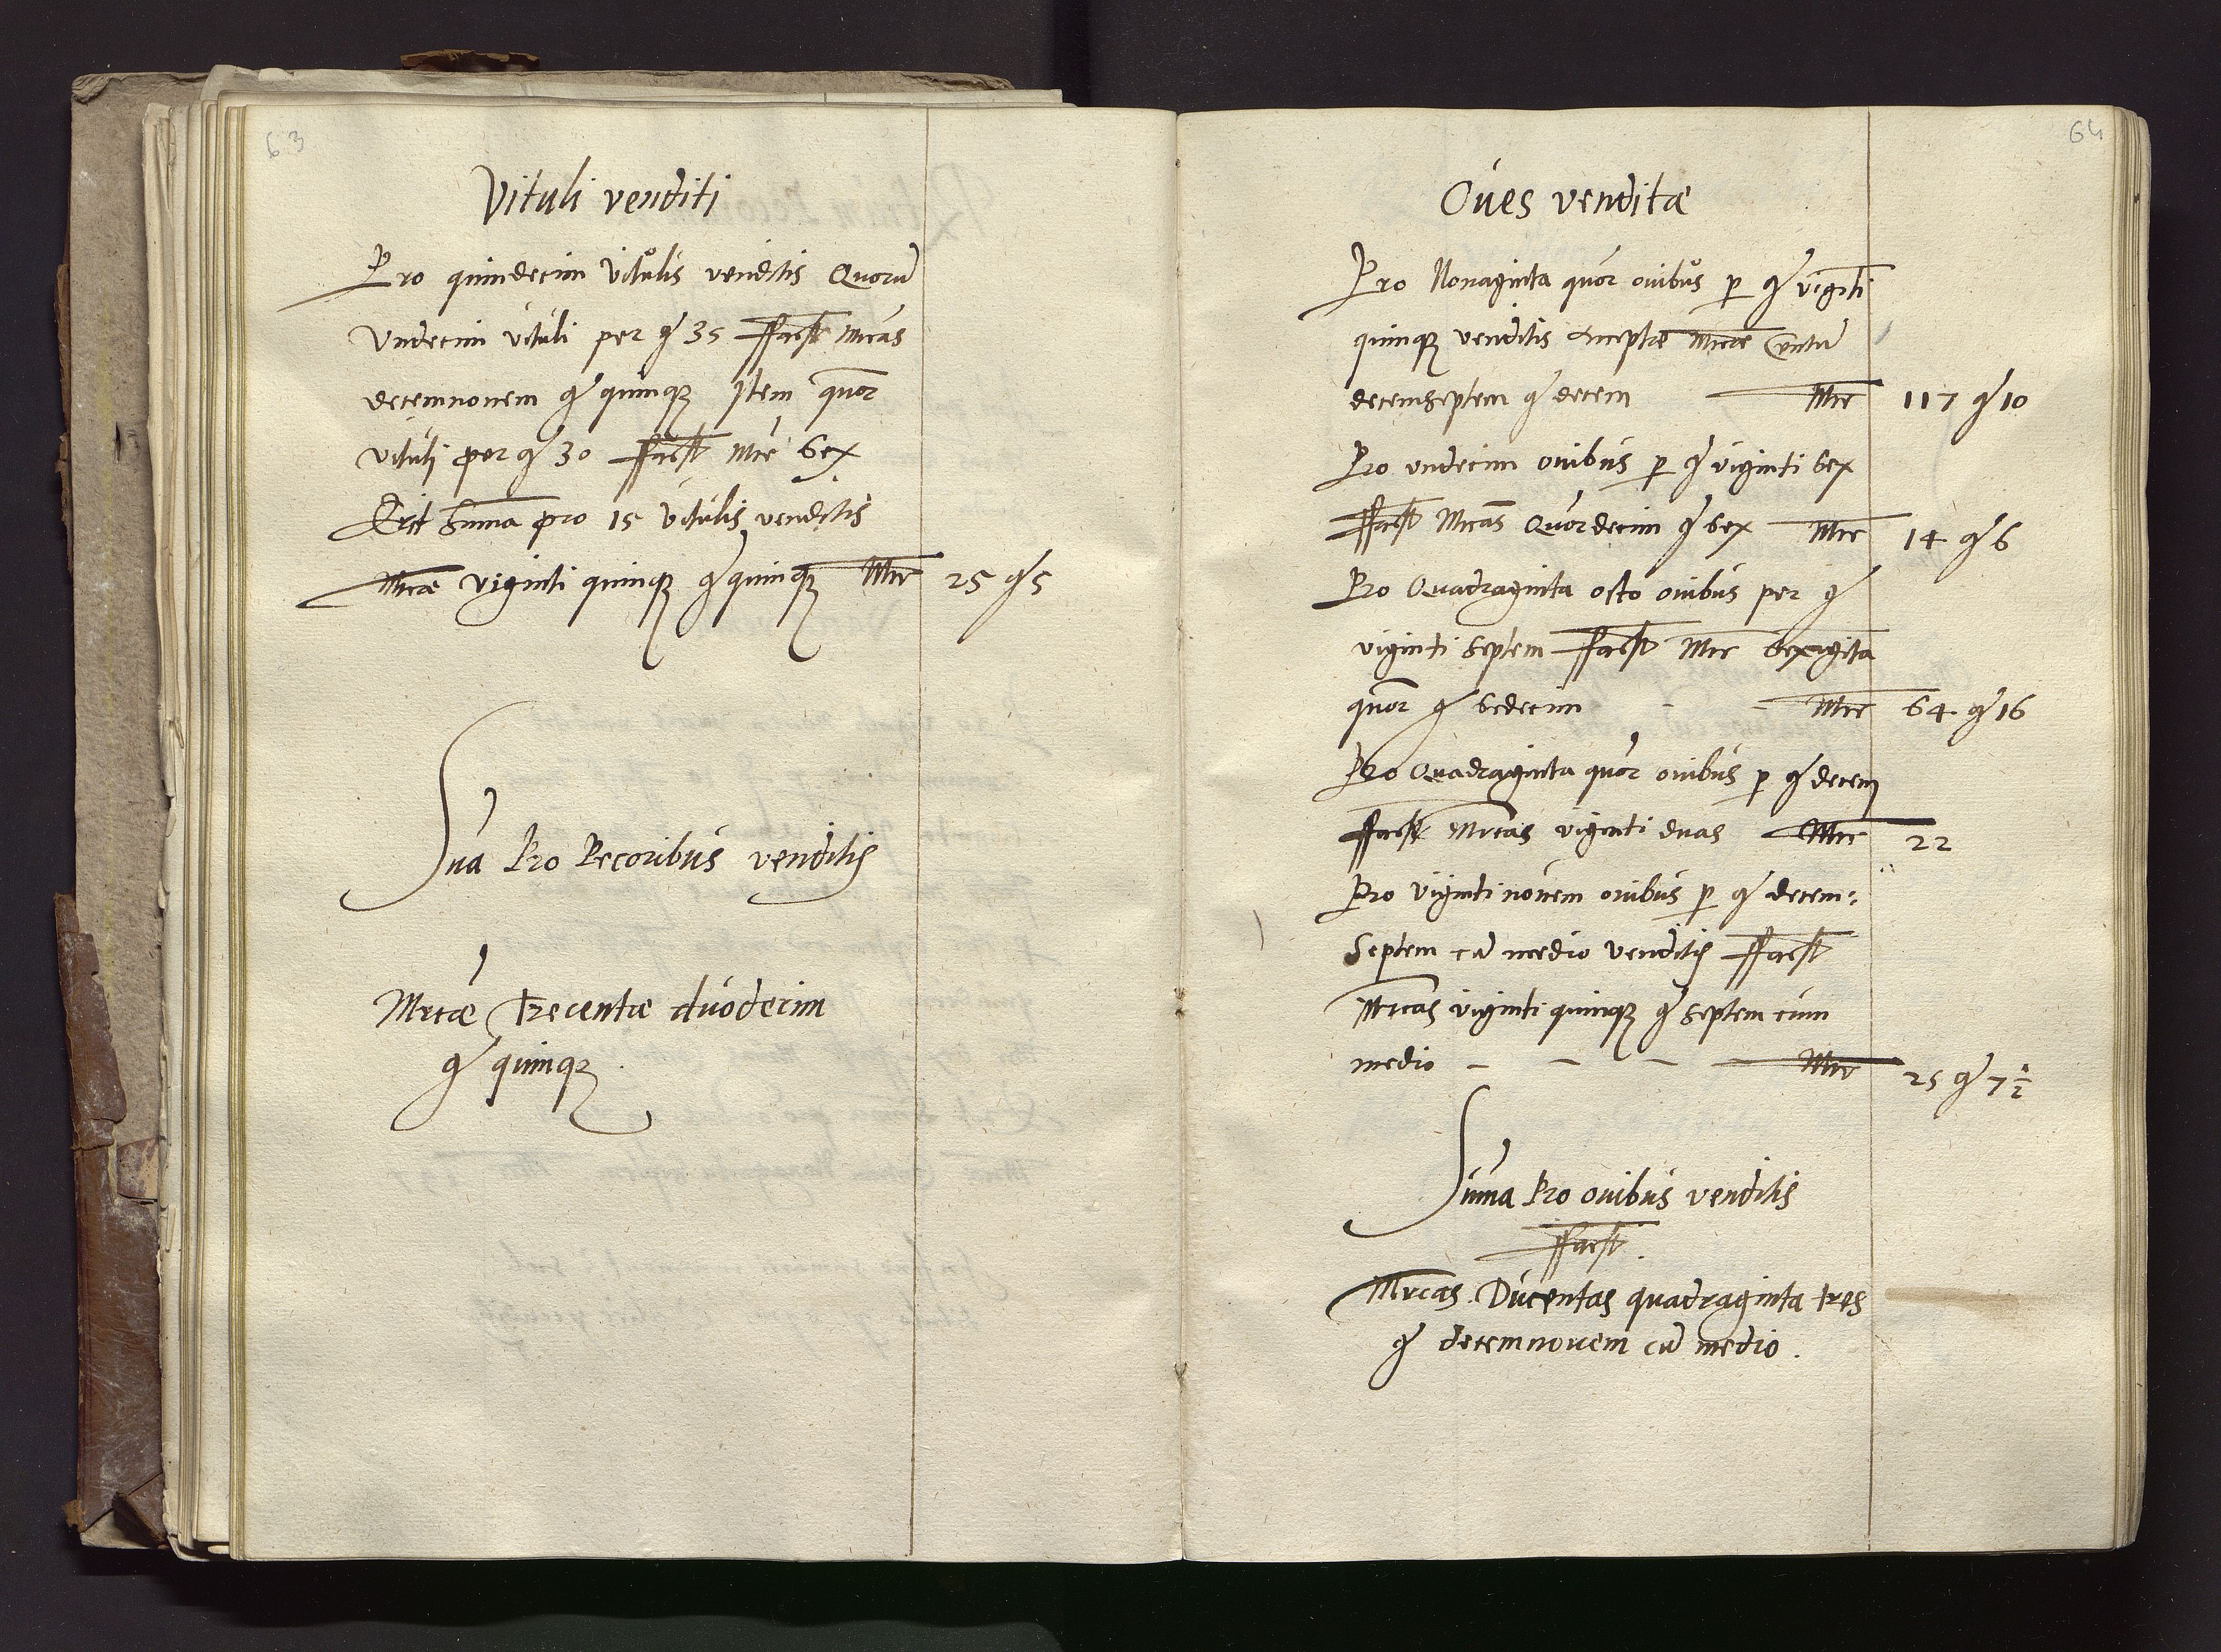 63
Vituli venditi
Pro quindecim Vitulis venditis Quorū
Vndecim vituli per gʳ 35 Facit Mrcas
decemnouem gʳ quinqʒ Item quor
vituli per gʳ 30 facit Mrc sex
Erit Summa pro 15 Vitulis venditis
Mrcae viginti quinqʒ gʳ quinqʒ Mrc 25 gʳ 5
Suma Pro Pecoribus venditis
Mrcae Trecentae duodecim
gʳ quinqʒ
64
Oues venditae
Pro Nonaginta quor ouibus p gʳ viginti
quinqʒ venditis acceptae Mrcae Centū
decemseptem gʳ decem Mrc 117 gʳ 10
Pro vndecim ouibus p gʳ viginti sex
Facit Mrcas Quordecim gʳ sex Mrc 14 gʳ 6
Pro Quadraginta octo ouibus per gʳ
viginti septem Facit Mrc sexagīta
quor gʳ sedecim - - Mrc 64 gʳ 16
Pro Quadraginta quor ouibus p gʳ decem
Facit Mrcas viginti duas Mrc 22
Pro viginti nouem ouibus p gʳ decem-
septem cū medio venditis Facit
Mrcas viginti quinqʒ gʳ septem cum
medio - - - Mrc 25 gʳ 7 ½
Summa Pro ouibus venditis
Facit.
Mrcas Ducentas quadraginta tres
gʳ decemnouem cū medio.